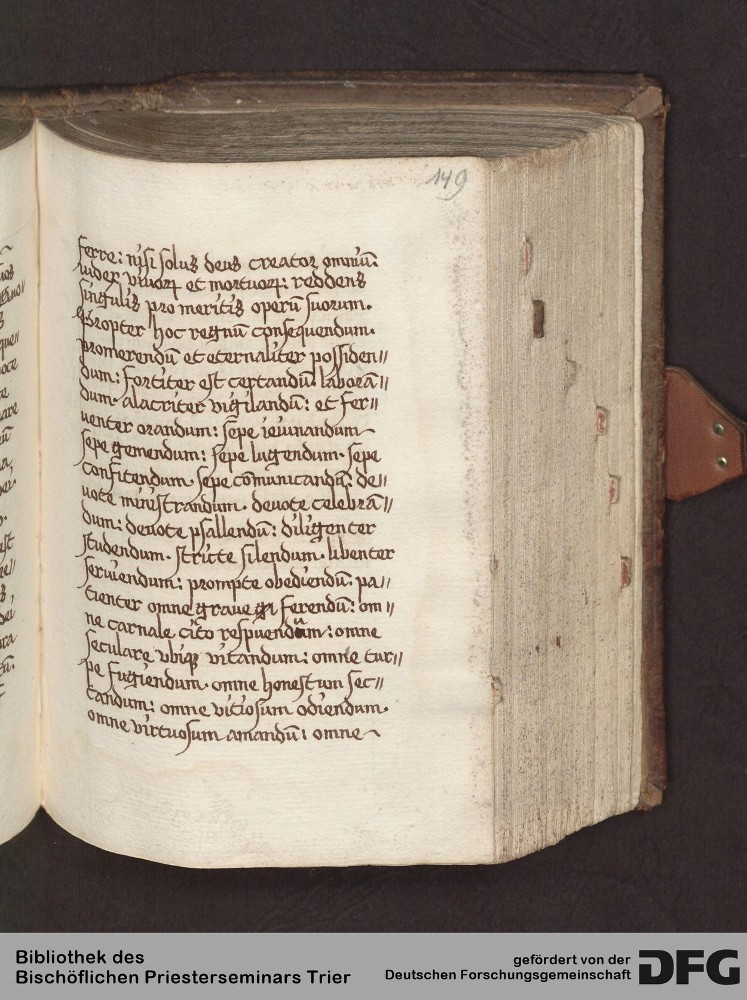 149
ferre: nisi solus deus creator omniū.
iudex vivorꝝ et mortuorꝝ: reddens
singulis pro meritis operū suorum.
Propter hoc regnū consequendum.
promerendū et eternaliter possiden〃
dum: fortiter est certandū. laborā〃
dum. alacriter vigilandū: et fer〃
uenter orandum: sepe ieiunandum
sepe gemendum: sepe lugendum. sepe
confitendum. sepe cōmunicandū: de〃
uote ministrandum. deuote celebrā〃
dum: deuote psallendū: diligenter
studendum. stricte silendum. libenter
seruiendum: prompte obediendū: pa〃
tienter omne graue ferendū: om〃
ne carnale cito respuendum: omne
seculare vbiqꝫ vitandum: omne tur〃
pe fugiendum. omne honestum sec〃
tandum: omne vitiosum odiendum.
omne virtuosum amandū: omne
Bibliothek des
Bischöflichen Priesterseminars Trier
gefördert von der
Deutschen Forschungsgemeinschaft
DFG